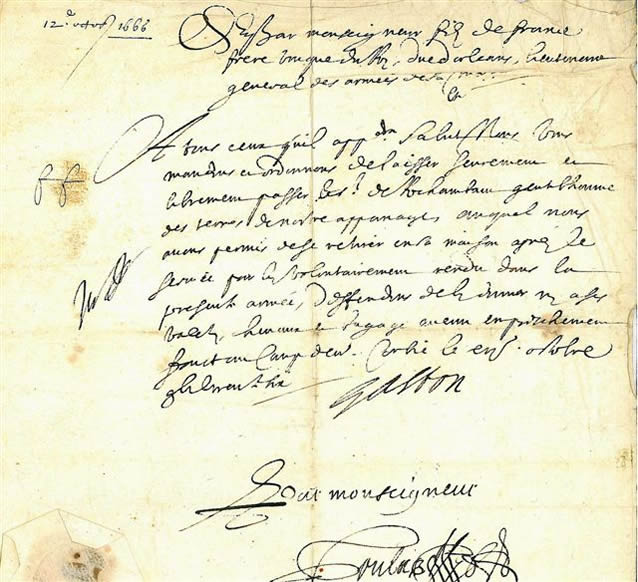 12e octob 1666
monseigneur filz de france
frere unique du Roy, duc d'orleans, lieutenant
general des armées de sa
A tous ceux qu'il appdra Salut Nous vous
mandons et ordonnons de laisser seurement et
librement passer le sr. de Rochambau gentilhomme
des terres de nostre appanage, auquel nous
avons permis de se retirer en sa maison après le
service par luy volontairement rendu dans la
presente armée, Deffendons de luy donner ny a ses
valetz, chevaux et bagage aucun empeschement
faict au Camp de le octobre
gaston
Par monseigneur
Goulas